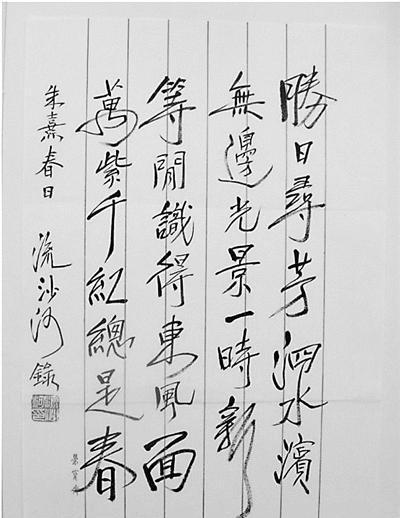 勝日尋芳泗水濱
無邊光景一時新
等閒識得東風面
萬紫千紅總是春
朱熹春日
流沙河錄